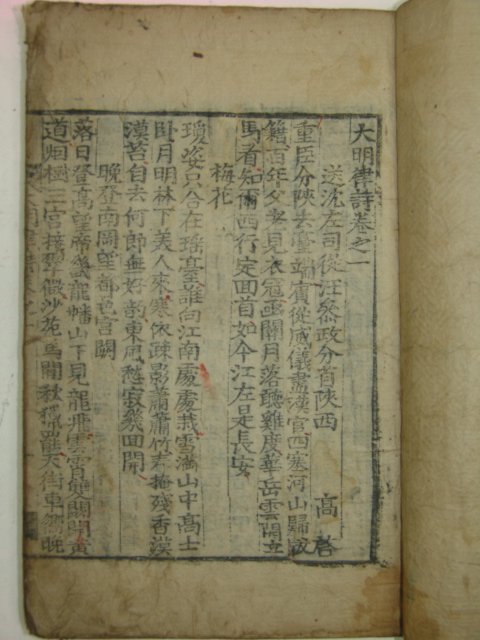 大明律詩卷之一
送沈左司從汪叅政分省陝西 高啓
重臣分陝去臺端賓從威儀盡漢官西塞河山歸版
籍百年父老見衣冠函關月落聽雞度華岳雲開立
馬看知爾西行定回首如今江左是長安
梅花
瓊姿只合在瑤臺誰向江南處處栽雪滿山中高士
卧月明林下美人來寒依疎影蕭蕭竹春掩殘香漠
漠苔自去何郎無好韵東風愁寂幾回開
晚登南岡望都邑宮闕
落日登高望帝畿龍蟠山下見龍飛雲霄雙闕開黃
道烟樹三宮接翠微沙苑馬閑秋獵罷天街車鬧晚